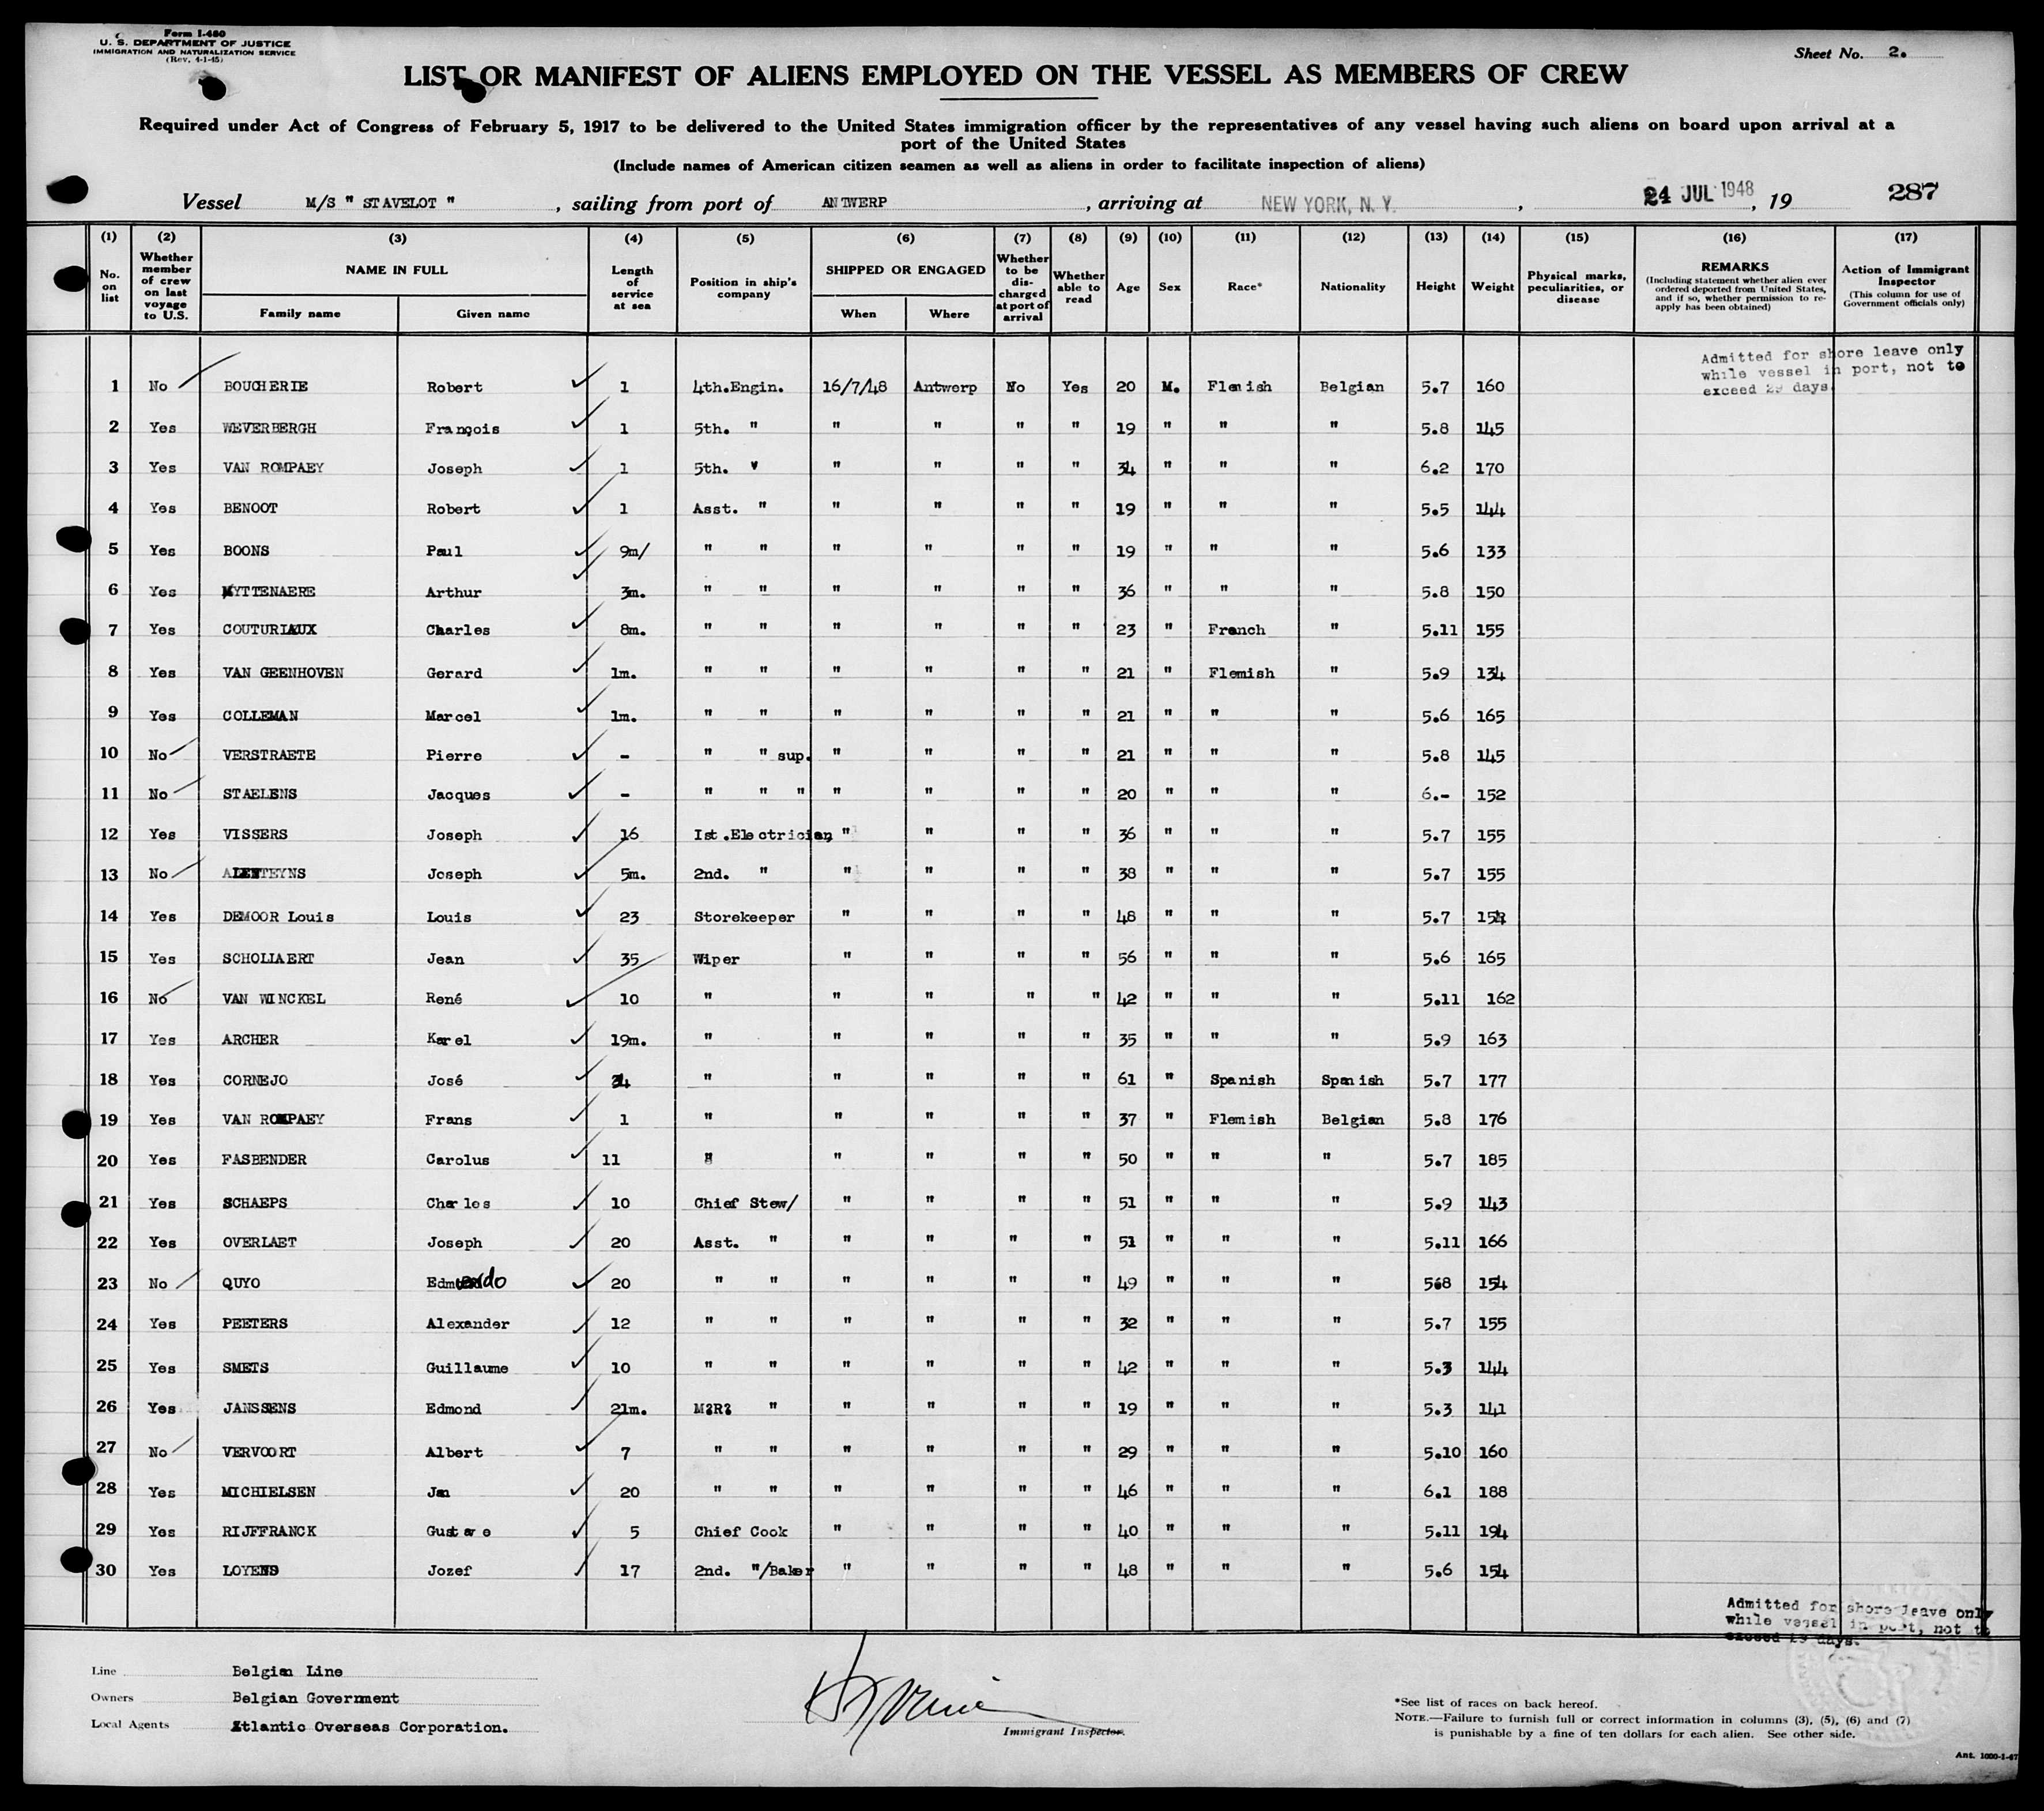 Form I-480
U. S. DEPARTMENT OF JUSTICE
IMMIGRATION AND NATURALIZATION SERVICE
(Rev. 4-1-45)
Sheet No. 2.
LIST OR MANIFEST OF ALIENS EMPLOYED ON THE VESSEL AS MEMBERS OF CREW
Required under Act of Congress of February 5, 1917 to be delivered to the United States immigration officer by the representatives of any vessel having such aliens on board upon arrival at a
port of the United States
(Include names of American citizen seamen as well as aliens in order to facilitate inspection of aliens)
Vessel M/S " STAVELOT " , sailing from port of ANTWERP , arriving at NEW YORK, N. Y. , 24 JUL 1948 , 19 287
(1) (2) (3) (4) (5) (6) (7) (8) (9) (10) (11) (12) (13) (14) (15) (16) (17)
No. on list Whether member of crew on last voyage to U.S. NAME IN FULL Family name Given name Length of service at sea Position in ship's company SHIPPED OR ENGAGED When Where Whether to be discharged at port of arrival Whether able to read Age Sex Race* Nationality Height Weight Physical marks, peculiarities, or disease REMARKS (Including statement whether alien ever ordered deported from United States, and if so, whether permission to re-apply has been obtained) Action of Immigrant Inspector (This column for use of Government officials only)
Admitted for shore leave only
while vessel in port, not to
exceed 29 days.
1 No BOUCHERIE Robert 1 4th.Engin. 16/7/48 Antwerp No Yes 20 M. Flemish Belgian 5.7 160
2 Yes WEVERBERGH François 1 5th. " " " " " 19 " " " 5.8 145
3 Yes VAN ROMPAEY Joseph 1 5th. " " " " " 34 " " " 6.2 170
4 Yes BENOOT Robert 1 Asst. " " " " " 19 " " " 5.5 144
5 Yes BOONS Paul 9m/ " " " " " " 19 " " " 5.6 133
6 Yes MYTTENAERE Arthur 3m. " " " " " " 36 " " " 5.8 150
7 Yes COUTURIAUX Charles 8m. " " " " " " 23 " French " 5.11 155
8 Yes VAN GEENHOVEN Gerard 1m. " " " " " " 21 " Flemish " 5.9 134
9 Yes COLLEMAN Marcel 1m. " " " " " " 21 " " " 5.6 165
10 No VERSTRAETE Pierre - " " sup. " " " " 21 " " " 5.8 145
11 No STAELENS Jacques - " " " " " " " 20 " " " 6.- 152
12 Yes VISSERS Joseph 16 Ist.Electrician, " " " " 36 " " " 5.7 155
13 No Joseph 5m. 2nd. " " " " " 38 " " " 5.7 155
14 Yes DEMOOR Louis Louis 23 Storekeeper " " " " 48 " " " 5.7
15 Yes SCHOLLAERT Jean 35 Wiper " " " " 56 " " " 5.6 165
16 No VAN WINCKEL René 10 " " " " " 42 " " " 5.11 162
17 Yes ARCHER Karel 19m. " " " " " 35 " " " 5.9 163
18 Yes CORNEJO José " " " " " 61 " Spanish Spanish 5.7 177
19 Yes VAN ROMPAEY Frans 1 " " " " " 37 " Flemish Belgian 5.8 176
20 Yes FASBENDER Carolus 11 " " " " " 50 " " " 5.7 185
21 Yes SCHAEPS Charles 10 Chief Stew/ " " " " 51 " " " 5.9 143
22 Yes OVERLAET Joseph 20 Asst. " " " " " 51 " " " 5.11 166
23 No QUYO 20 " " " " " " 49 " " " 568 154
24 Yes PEETERS Alexander 12 " " " " " " 32 " " " 5.7 155
25 Yes SMETS Guillaume 10 " " " " " " 42 " " " 5.3 144
26 Yes JANSSENS Edmond 21m. M?R? " " " " " 19 " " " 5.3 141
27 No VERVOORT Albert 7 " " " " " " 29 " " " 5.10 160
28 Yes MICHIELSEN Jan 20 " " " " " " 46 " " " 6.1 188
29 Yes RIJFFRANCK Gustave 5 Chief Cook " " " " 40 " " " 5.11 194
30 Yes LOYENS Jozef 17 2nd. "/Baker " " " " 48 " " " 5.6 154
Admitted for shore leave only
while vessel in port, not to
exceed 29 days.
Line Belgian Line
Owners Belgian Government
Local Agents Atlantic Overseas Corporation.
Immigrant Inspector.
*See list of races on back hereof.
NOTE.—Failure to furnish full or correct information in columns (3), (5), (6) and (7)
is punishable by a fine of ten dollars for each alien. See other side.
Ant. 1000-1-47